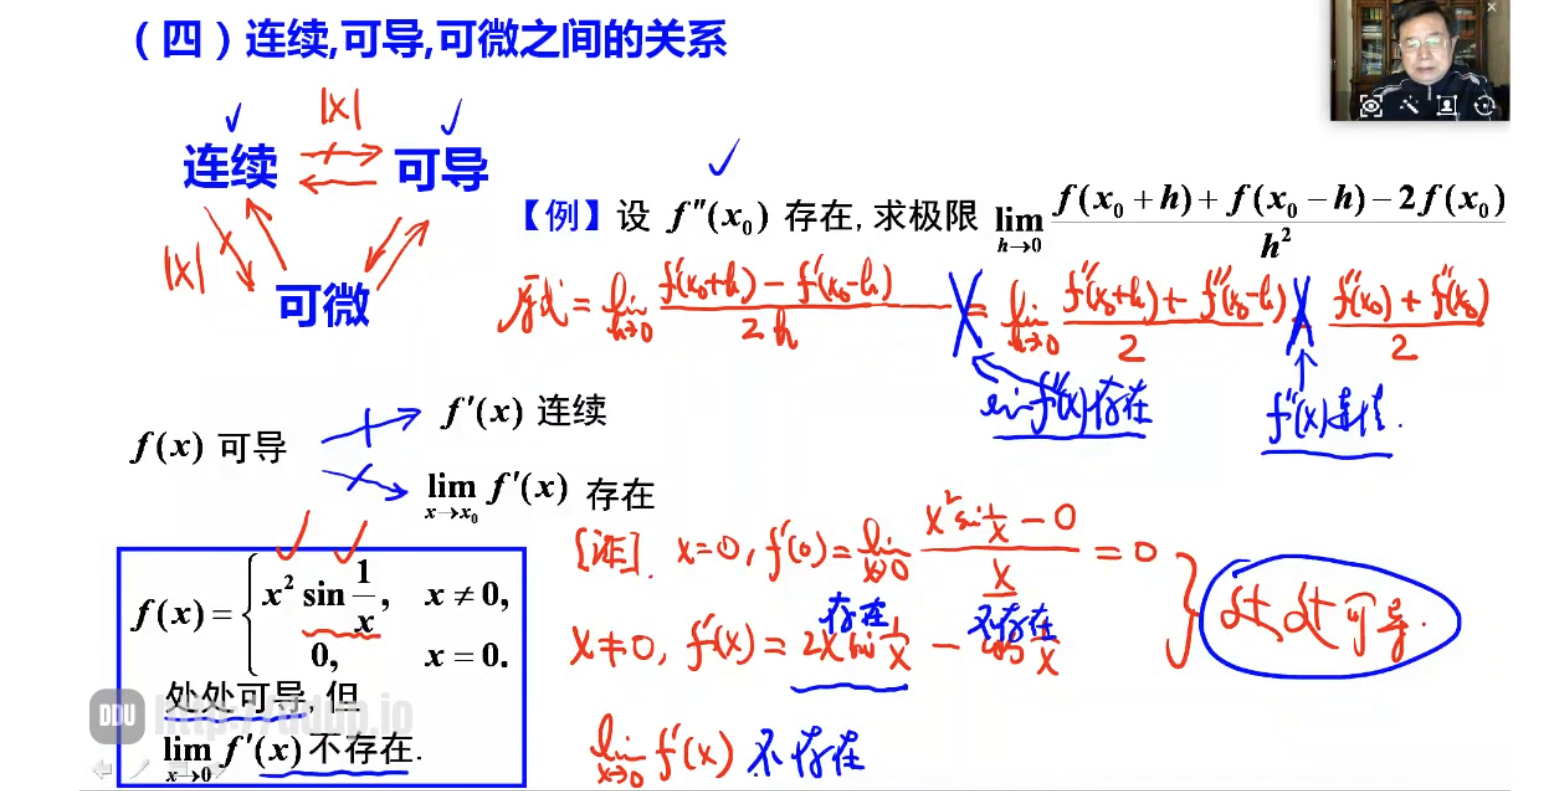 （四）连续,可导,可微之间的关系
|x|
连续 可导
|x|
可微
【例】设 f″(x₀) 存在, 求极限 lim h→0 f(x₀+h)+f(x₀−h)−2f(x₀) / h²
原式 = lim h→0 f′(x₀+h) − f′(x₀−h) / 2h = lim h→0 f″(x₀+h) + f″(x₀−h) / 2 = f″(x₀) + f″(x₀) / 2
lim f″(x) 存在
f″(x) 连续.
f(x) 可导
f′(x) 连续
lim x→x₀ f′(x) 存在
f(x) = { x² sin 1/x, x ≠ 0,
0, x = 0.
处处可导, 但
lim x→0 f′(x) 不存在.
[证]. x=0, f′(0) = lim x→0 x² sin 1/x − 0 / x = 0
存在 不存在
x≠0, f′(x) = 2x sin 1/x − cos 1/x
处处可导.
lim x→0 f′(x) 不存在
DDU http://ddup.io